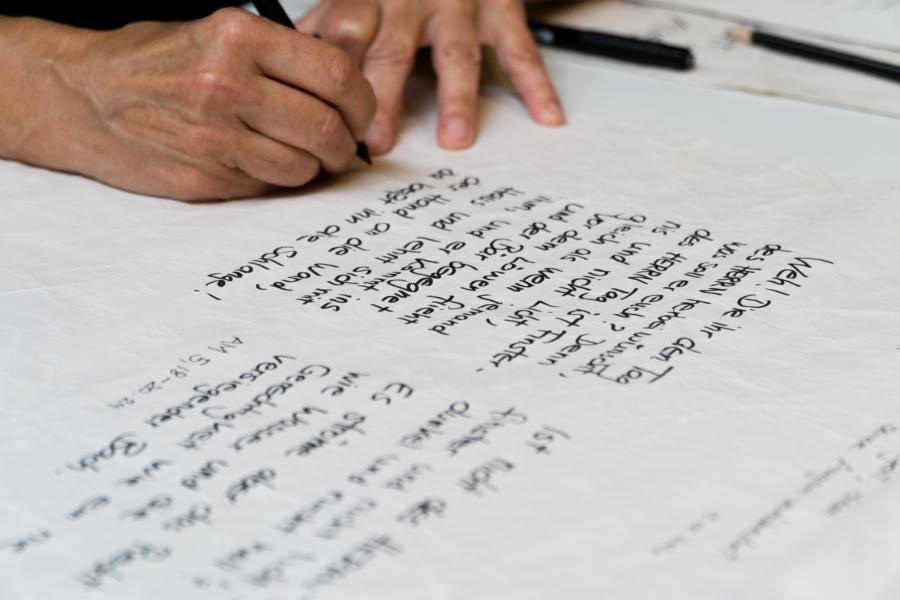 Weh! Die ihr den Tag
des HERRN herbeiwünscht,
was soll er euch? Denn
des HERRN Tag ist Finster-
nis und nicht Licht,
gleich als wenn jemand
vor dem Löwen flieht
und der Bär begegnet
ihm, und er kommt ins
Haus und lehnt sich mit
der Hand an die Wand,
da beißt ihn die Schlange!
Ist nicht des HERRN
finster und nicht licht
dunkel und nicht hell?
Es ströme aber das Recht
wie Wasser und die
Gerechtigkeit wie ein nie
versiegender Bach.
AM 5,18-20.24